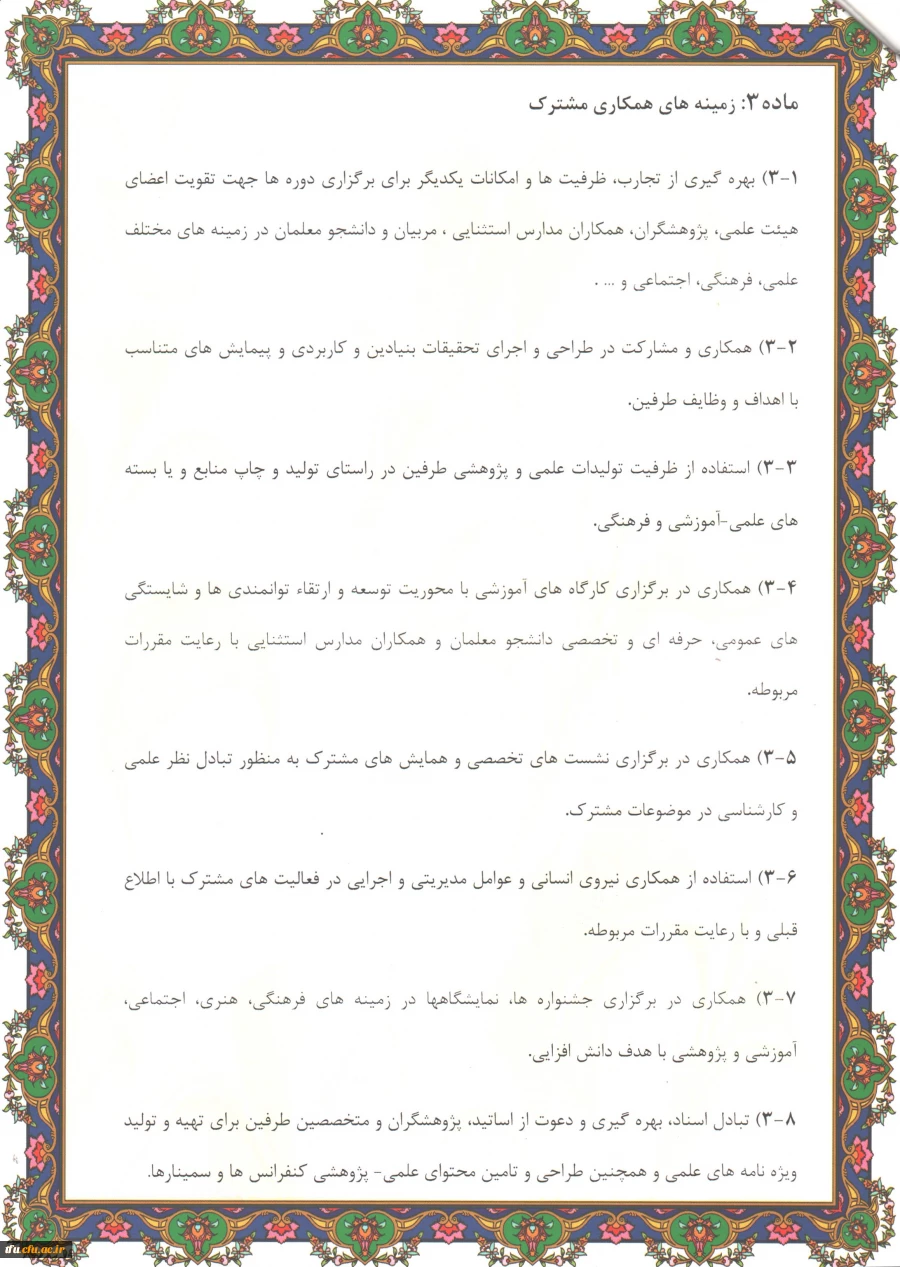 ماده ۳: زمینه های همکاری مشترک
۳-۱) بهره گیری از تجارب، ظرفیت ها و امکانات یکدیگر برای برگزاری دوره ها جهت تقویت اعضای
هیئت علمی، پژوهشگران، همکاران مدارس استثنایی ، مربیان و دانشجو معلمان در زمینه های مختلف
علمی، فرهنگی، اجتماعی و ... .
۳-۲) همکاری و مشارکت در طراحی و اجرای تحقیقات بنیادین و کاربردی و پیمایش های متناسب
با اهداف و وظایف طرفین.
۳-۳) استفاده از ظرفیت تولیدات علمی و پژوهشی طرفین در راستای تولید و چاپ منابع و یا بسته
های علمی-آموزشی و فرهنگی.
۳-۴) همکاری در برگزاری کارگاه های آموزشی با محوریت توسعه و ارتقاء توانمندی ها و شایستگی
های عمومی، حرفه ای و تخصصی دانشجو معلمان و همکاران مدارس استثنایی با رعایت مقررات
مربوطه.
۳-۵) همکاری در برگزاری نشست های تخصصی و همایش های مشترک به منظور تبادل نظر علمی
و کارشناسی در موضوعات مشترک.
۳-۶) استفاده از همکاری نیروی انسانی و عوامل مدیریتی و اجرایی در فعالیت های مشترک با اطلاع
قبلی و با رعایت مقررات مربوطه.
۳-۷) همکاری در برگزاری جشنواره ها، نمایشگاهها در زمینه های فرهنگی، هنری، اجتماعی،
آموزشی و پژوهشی با هدف دانش افزایی.
۳-۸) تبادل اسناد، بهره گیری و دعوت از اساتید، پژوهشگران و متخصصین طرفین برای تهیه و تولید
ویژه نامه های علمی و همچنین طراحی و تامین محتوای علمی- پژوهشی کنفرانس ها و سمینارها.
tfu.cfu.ac.ir